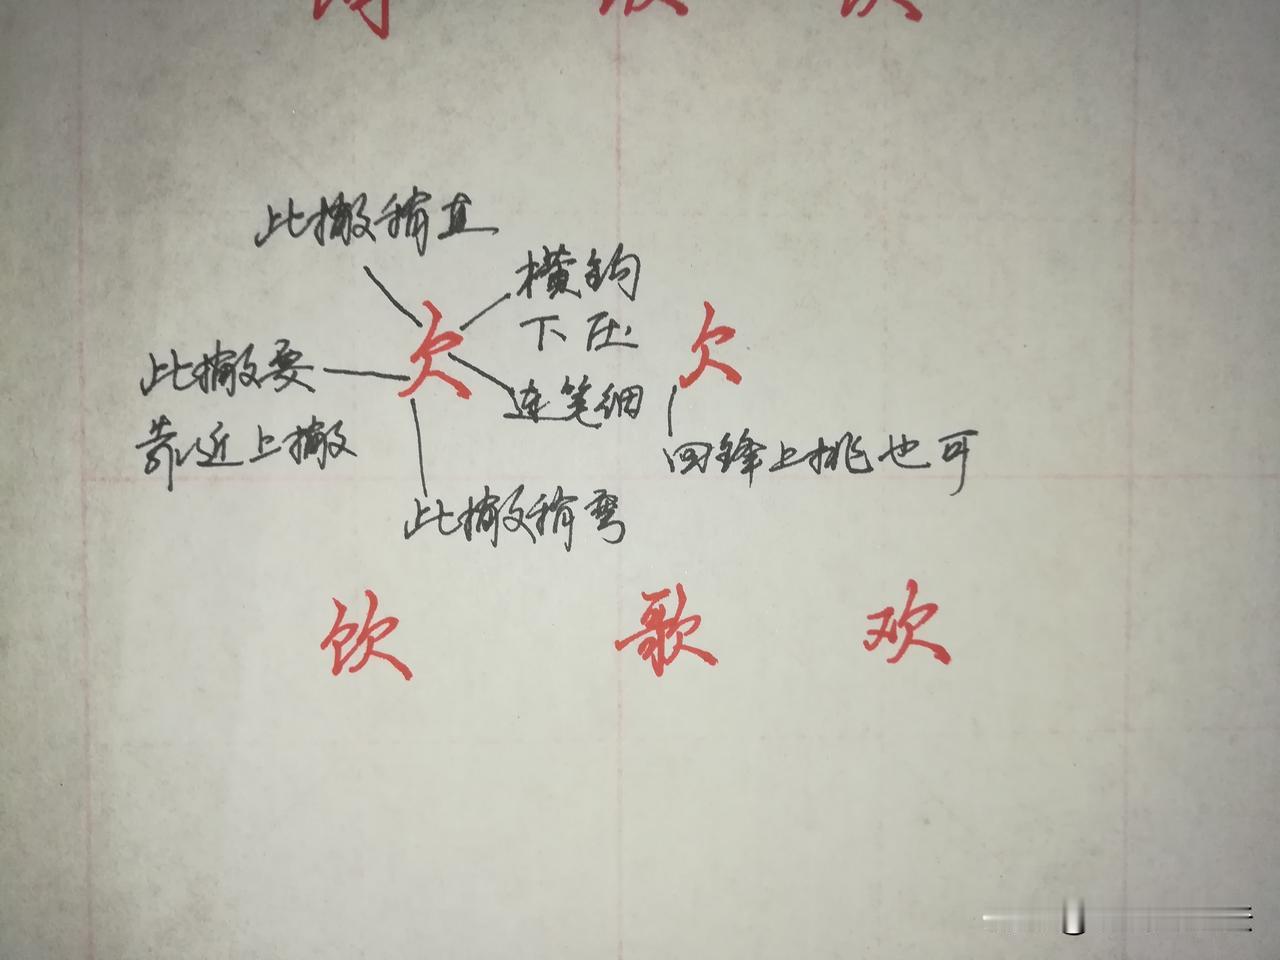 此撇稍直
横钩
下压
欠
欠
此撇要
连笔细
靠近上撇
回锋上挑也可
此撇稍弯
饮 歌 欢